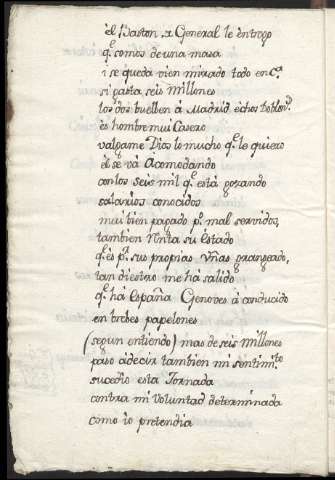 èl Baston, ɤ General le entrego
q̃ somos de una masa
i se queda vien mirado todo en C.ª
si gasta seis millones
los dos buelben à Madrid èchos
ès hombre mui Casero
valgame Dios lo mucho q̃ le quiero
èl sè và Acomodando
con los seis mil q̃ està gozando
salarios conocidos
mui bien pagado p.r mal servidos,
tambien su Estado
q̃ ès p.r sus proprias vñas grangeado,
tan diestro me hà salido
q̃ hà España Genoves à conducido
en brebes papelones
(segun entiendo) mas de seis millones
paso à decir tambien mi sentim.to
sucedio esta Jornada
contra mi Voluntad determinada
como ìo pretendia